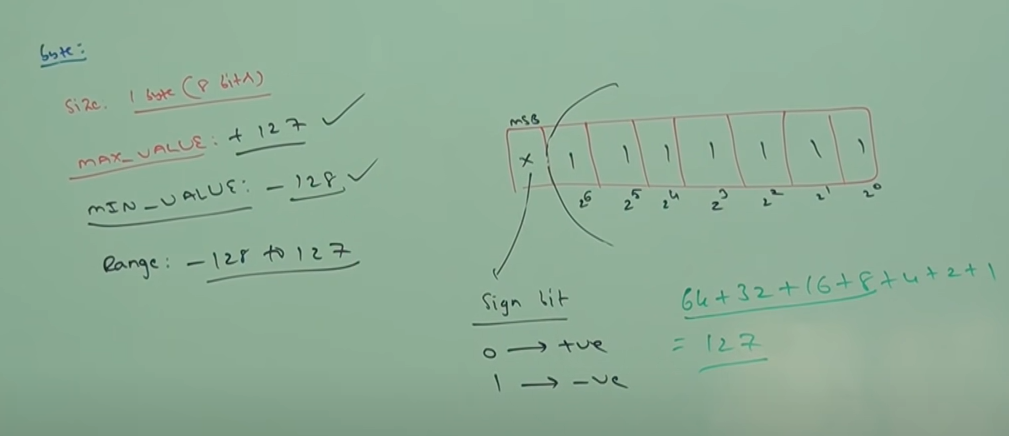 byte:
Size: 1 byte (8 bits)
MAX_VALUE: +127 ✓
MIN_VALUE: -128 ✓
Range: -128 to 127
MSB
x 1 1 1 1 1 1 1
2⁶ 2⁵ 2⁴ 2³ 2² 2¹ 2⁰
Sign bit
0 → +ve
1 → -ve
64+32+16+8+4+2+1
= 127